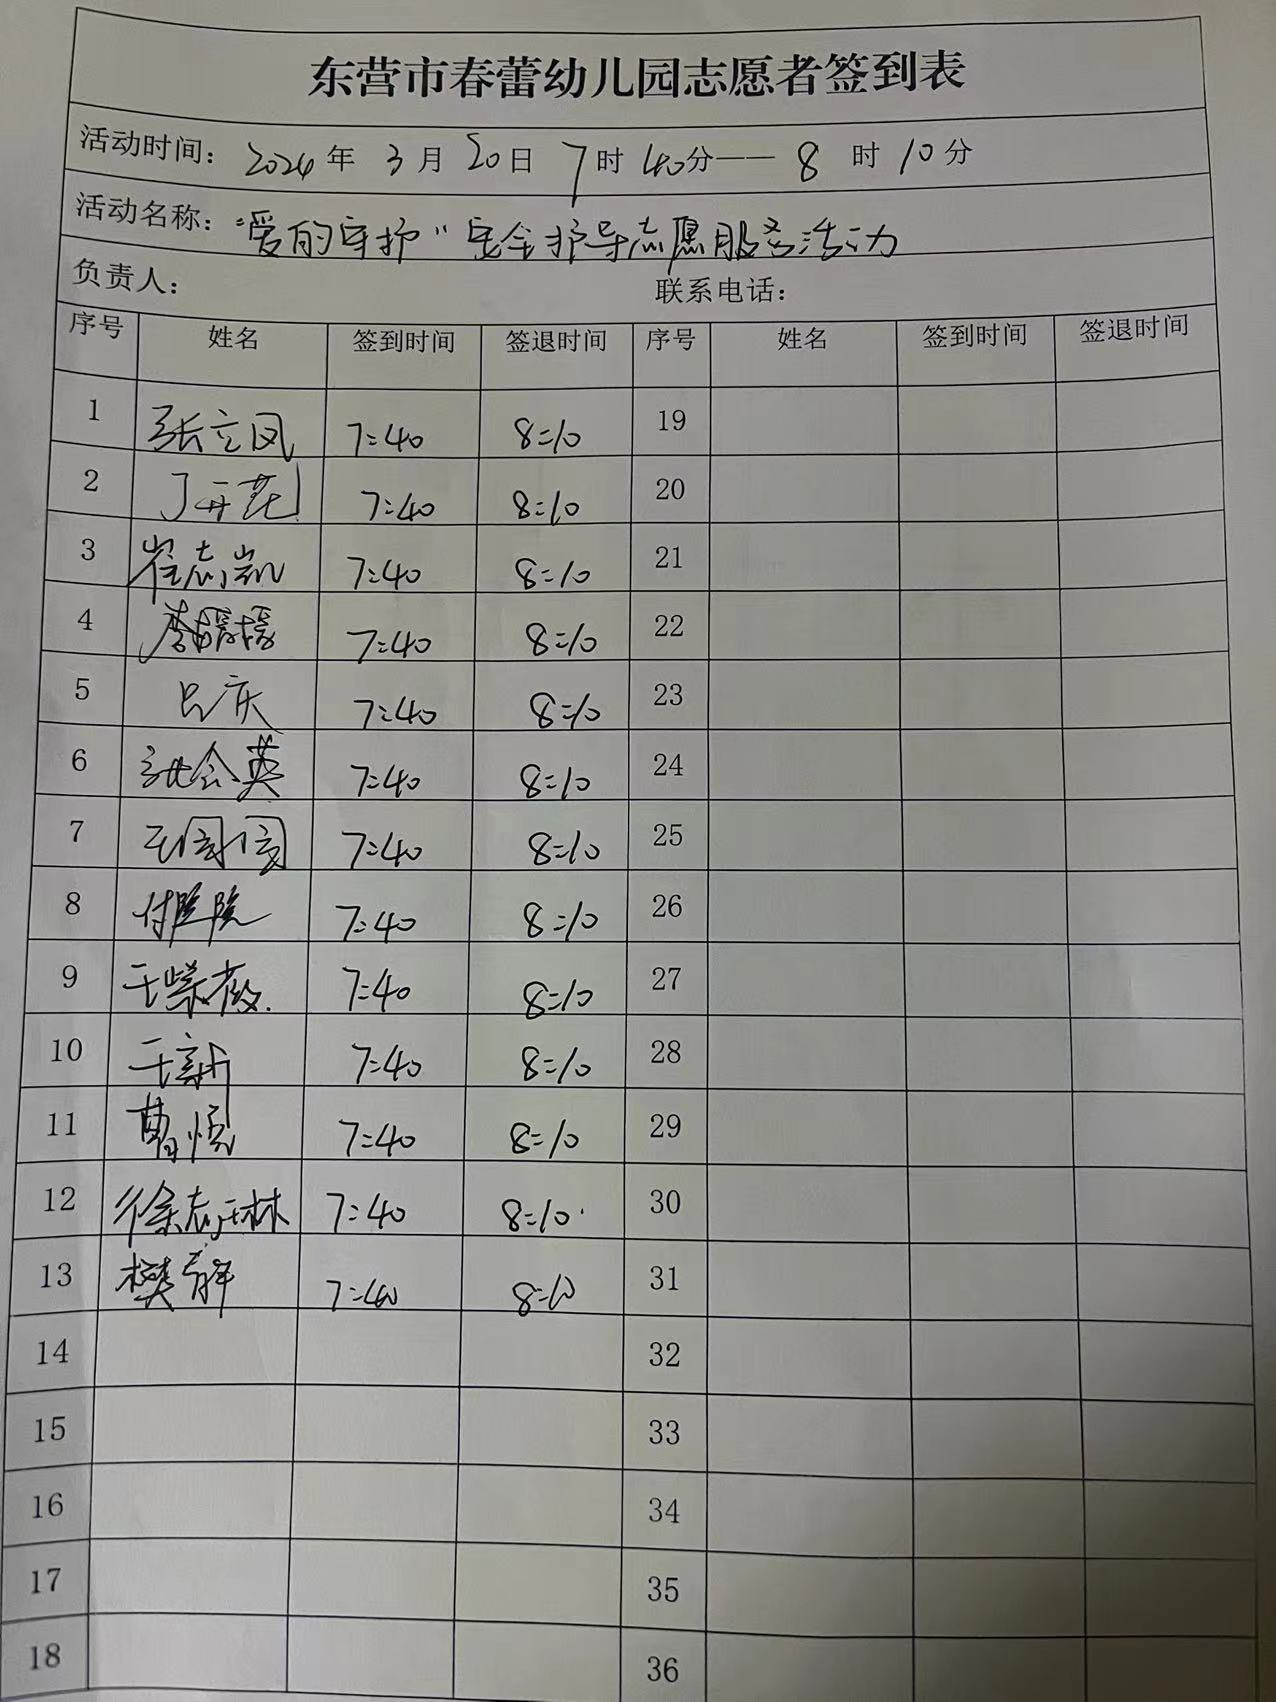 东营市春蕾幼儿园志愿者签到表
活动时间: 2024 年 3 月 20 日 7 时 40 分—— 8 时 10 分
活动名称: “爱的守护”安全护导志愿服务活动
负责人: 联系电话:
序号 姓名 签到时间 签退时间 序号 姓名 签到时间 签退时间
1 张立凤 7:40 8:10 19
2 丁开花 7:40 8:10 20
3 崔志凯 7:40 8:10 21
4 李媛媛 7:40 8:10 22
5 吕庆 7:40 8:10 23
6 张会英 7:40 8:10 24
7 7:40 8:10 25
8 付院院 7:40 8:10 26
9 王紫薇 7:40 8:10 27
10 王新 7:40 8:10 28
11 曹悦 7:40 8:10 29
12 徐志琳 7:40 8:10 30
13 樊群 7:40 8:10 31
14 32
15 33
16 34
17 35
18 36